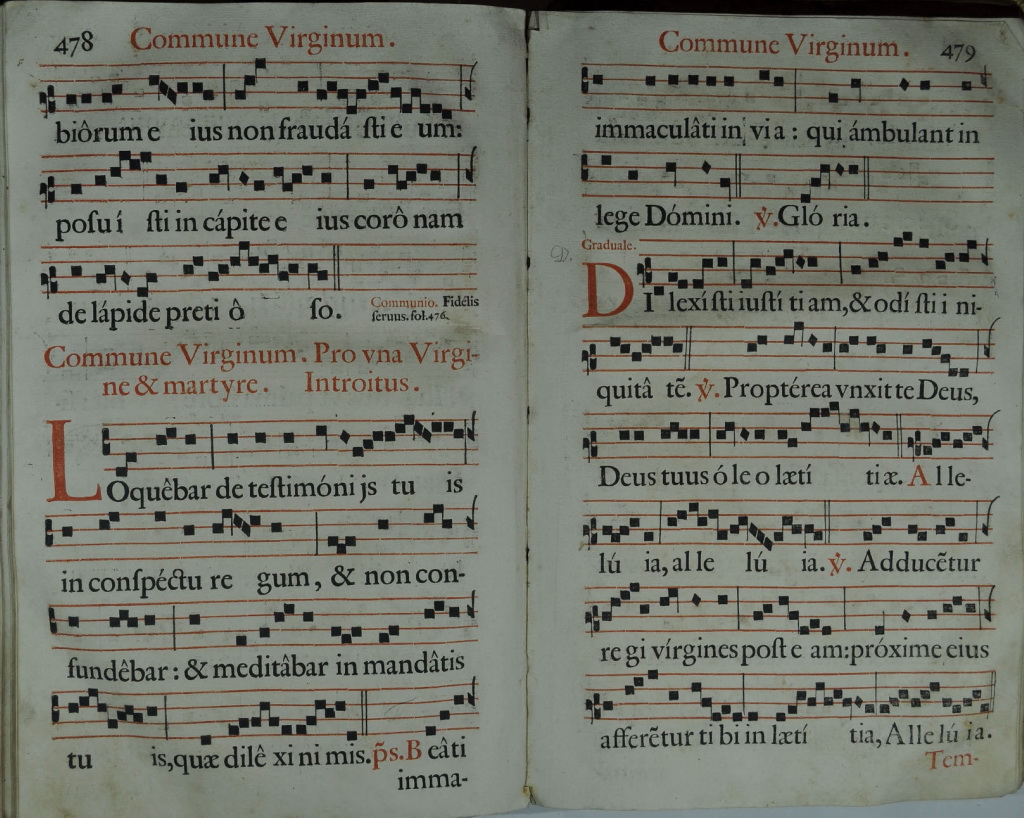 478 Commune Virginum.
biôrum e ius non fraudá sti e um:
posuí sti in cápite e ius corô nam
de lápide preti ô so. Communio. Fidélis
seruus. fol. 476.
Commune Virginum. Pro vna Virgi-
ne & martyre. Introitus.
LOquêbar de testimóni js tu is
in conspéctu re gum, & non con-
fundêbar: & meditâbar in mandâtis
tu is, quæ dilê xi ni mis. p̃s. B eâti
imma-
Commune Virginum. 479
immaculâti in via: qui ámbulant in
lege Dómini. ℣. Gló ria.
Graduale.
D.
DI lexí sti iustí ti am, & odí sti i ni-
quitâ tẽ. ℣. Proptérea vnxit te Deus,
Deus tuus ó le o lætí ti æ. A l le-
lú ia, al le lú ia. ℣. Adducẽtur
re gi vírgines post e am: próxime eius
afferẽtur ti bi in lætí tia, Alle lú ia.
Tem-